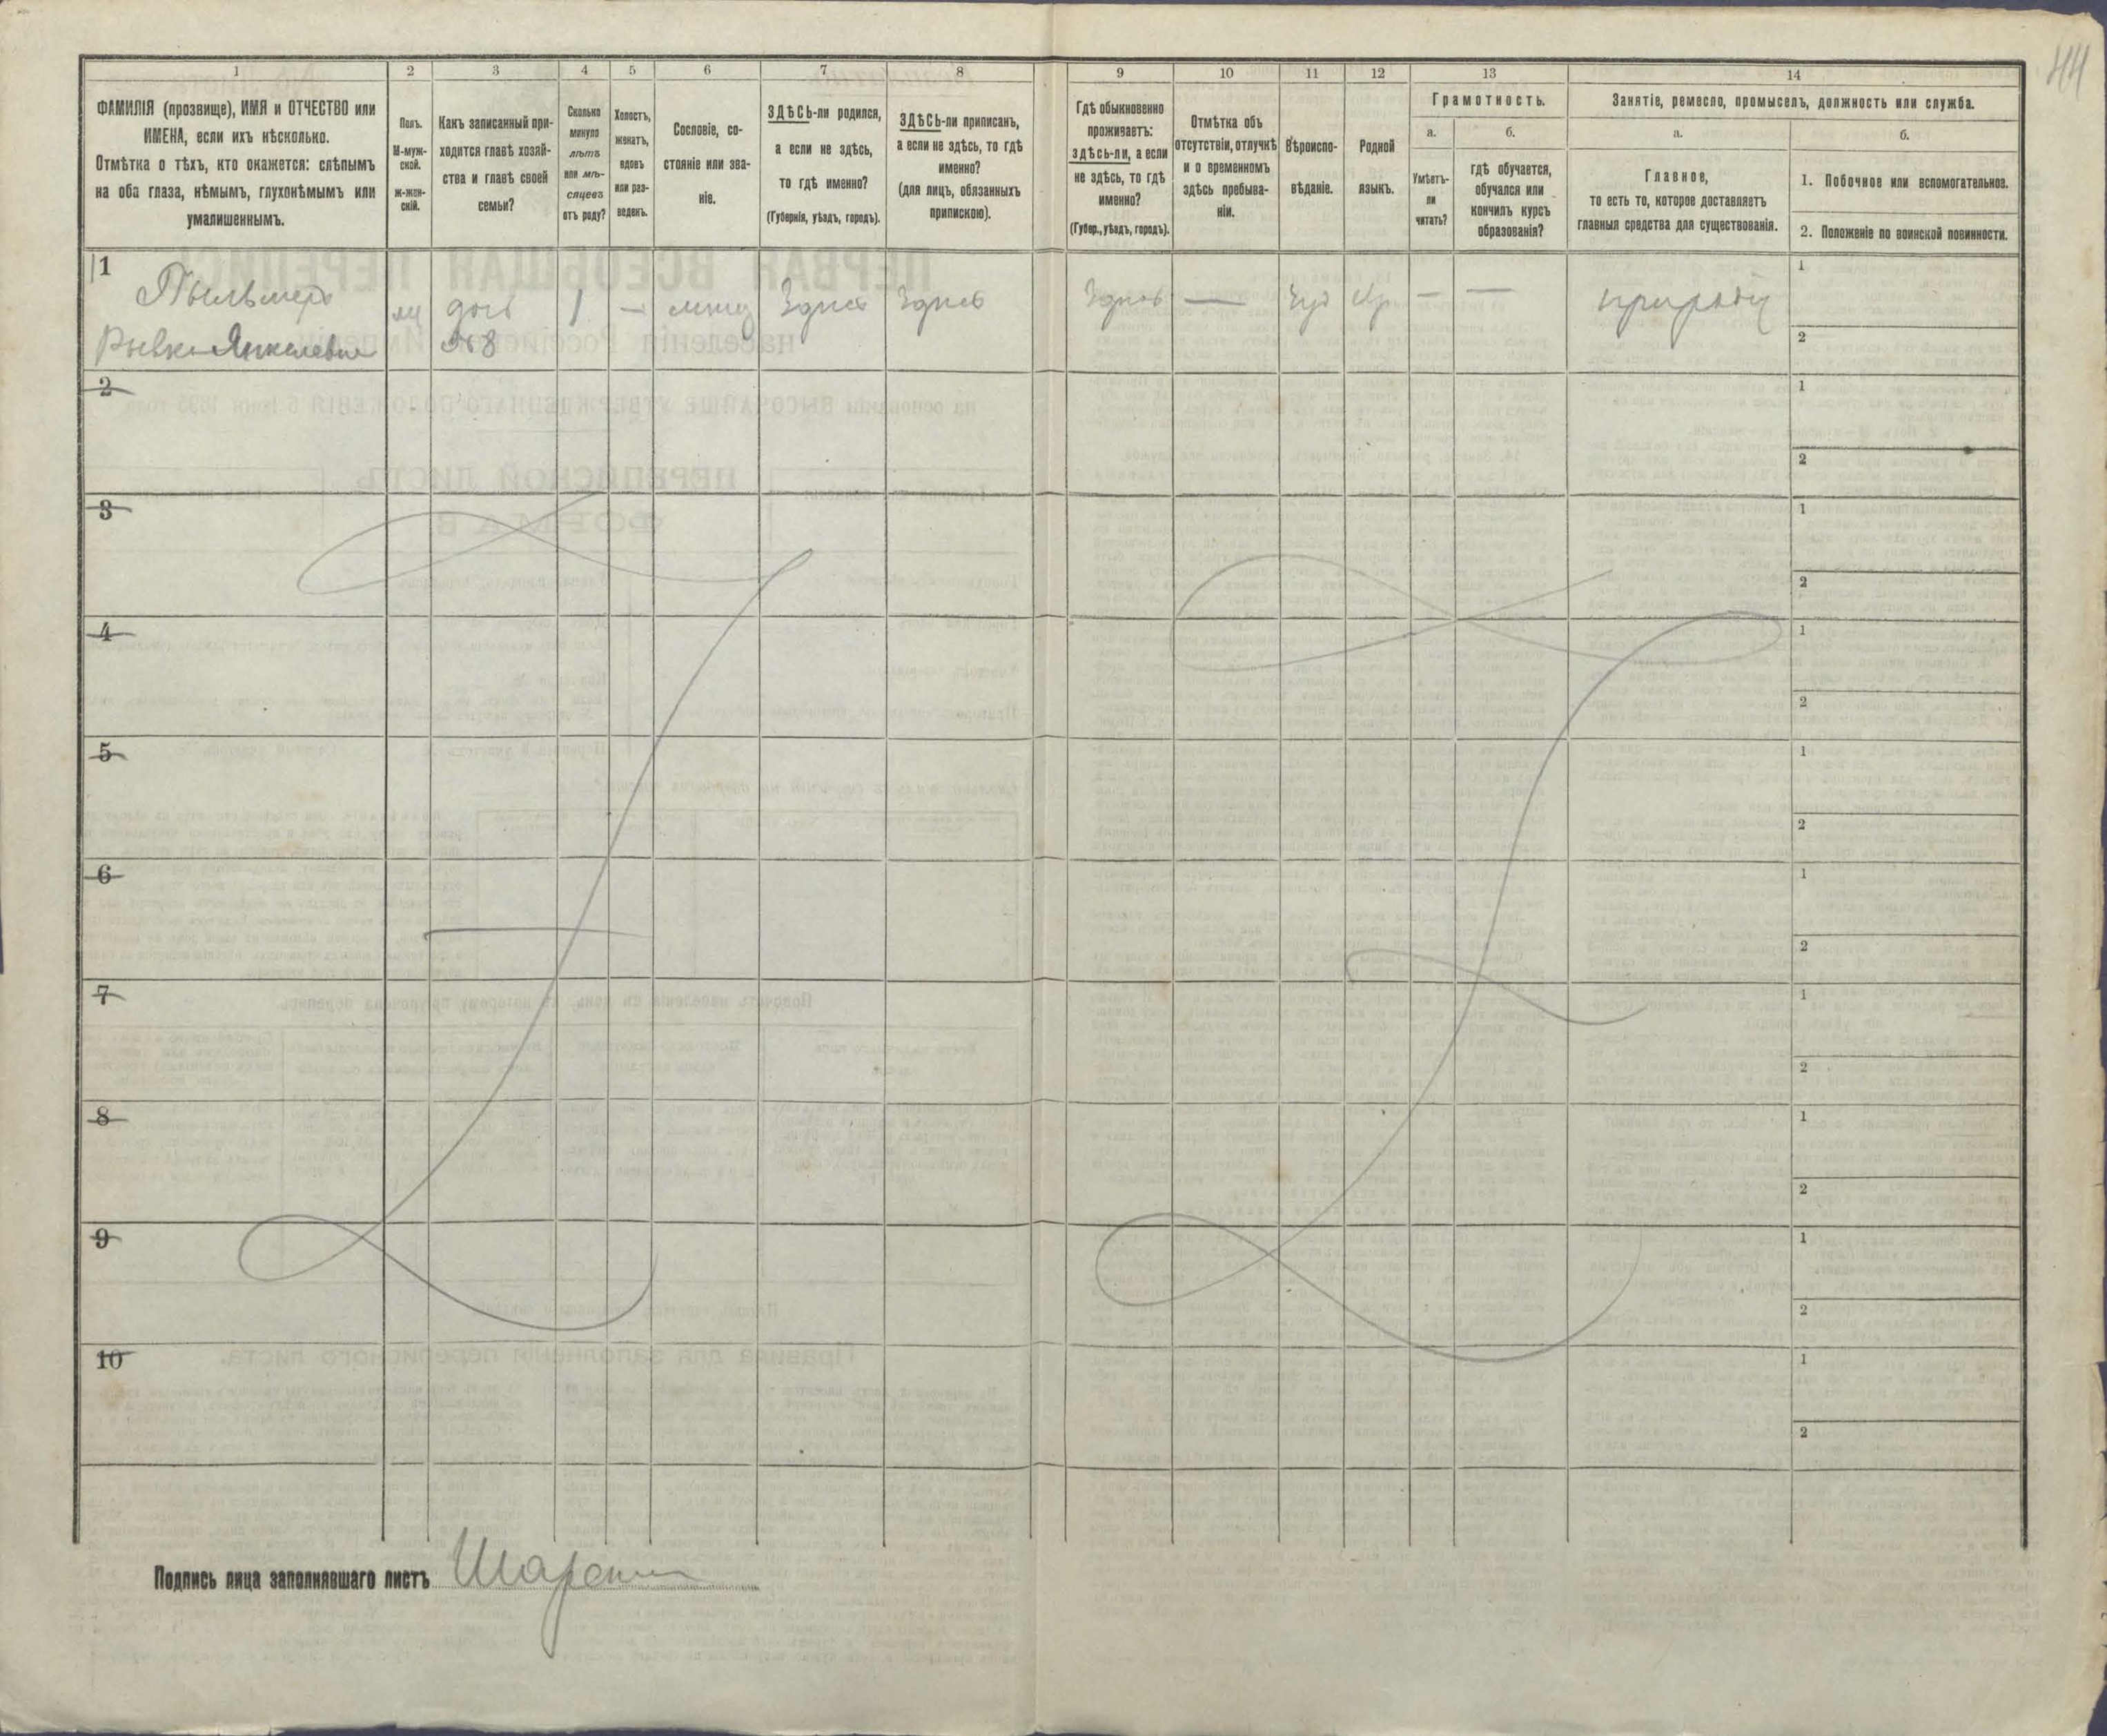 44
1
ФАМИЛІЯ (прозвище), ИМЯ и ОТЧЕСТВО или
ИМЕНА, если ихъ нѣсколько.
Отмѣтка о тѣхъ, кто окажется: слѣпымъ
на оба глаза, нѣмымъ, глухонѣмымъ или
умалишеннымъ.
2
Полъ.
М-муж-
ской.
ж-жен-
скій.
3
Какъ записанный при-
ходится главѣ хозяй-
ства и главѣ своей
семьи?
4
Сколько
минуло
лѣтъ
или мѣ-
сяцевъ
отъ роду?
5
Холостъ,
женатъ,
вдовъ
или раз-
веденъ.
6
Сословіе, со-
стояніе или зва-
ніе.
7
ЗДѢСЬ-ли родился,
а если не здѣсь,
то гдѣ именно?
(Губернія, уѣздъ, городъ).
8
ЗДѢСЬ-ли приписанъ,
а если не здѣсь, то гдѣ
именно?
(для лицъ, обязанныхъ
припискою).
9
Гдѣ обыкновенно
проживаетъ:
здѣсь-ли, а если
не здѣсь, то гдѣ
именно?
(Губер., уѣздъ, городъ).
10
Отмѣтка объ
отсутствіи, отлучкѣ
и о временномъ
здѣсь пребыва-
ніи.
11
Вѣроиспо-
вѣданіе.
12
Родной
языкъ.
13
Грамотность.
а.
Умѣетъ-
ли
читать?
б.
гдѣ обучается,
обучался или
кончилъ курсъ
образованія?
14
Занятіе, ремесло, промыселъ, должность или служба.
а.
Главное,
то есть то, которое доставляетъ
главныя средства для существованія.
б.
1. Побочное или вспомогательное.
2. Положеніе по воинской повинности.
1
Рывка Янкелевна
дочь
№8
1
—
Здѣсь
Здѣсь
Здѣсь
—
Іуд
—
—
1
2
2
1
2
3
1
2
4
1
2
5
1
2
6
1
2
7
1
2
8
1
2
9
1
2
10
1
2
Подпись лица заполнявшаго листъ